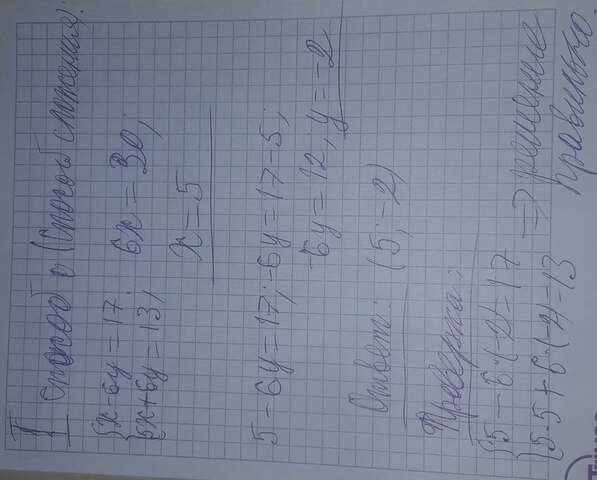 I способ (Способ сложения):
{x-6y=17; 6x=30;
{5x+6y=13; x=5
5-6y=17; -6y=17-5;
-6y=12, y=-2
Ответ: (5; -2)
Проверка:
{5-6·(-2)=17
{5·5+6·(-2)=13 => решение
правильно.